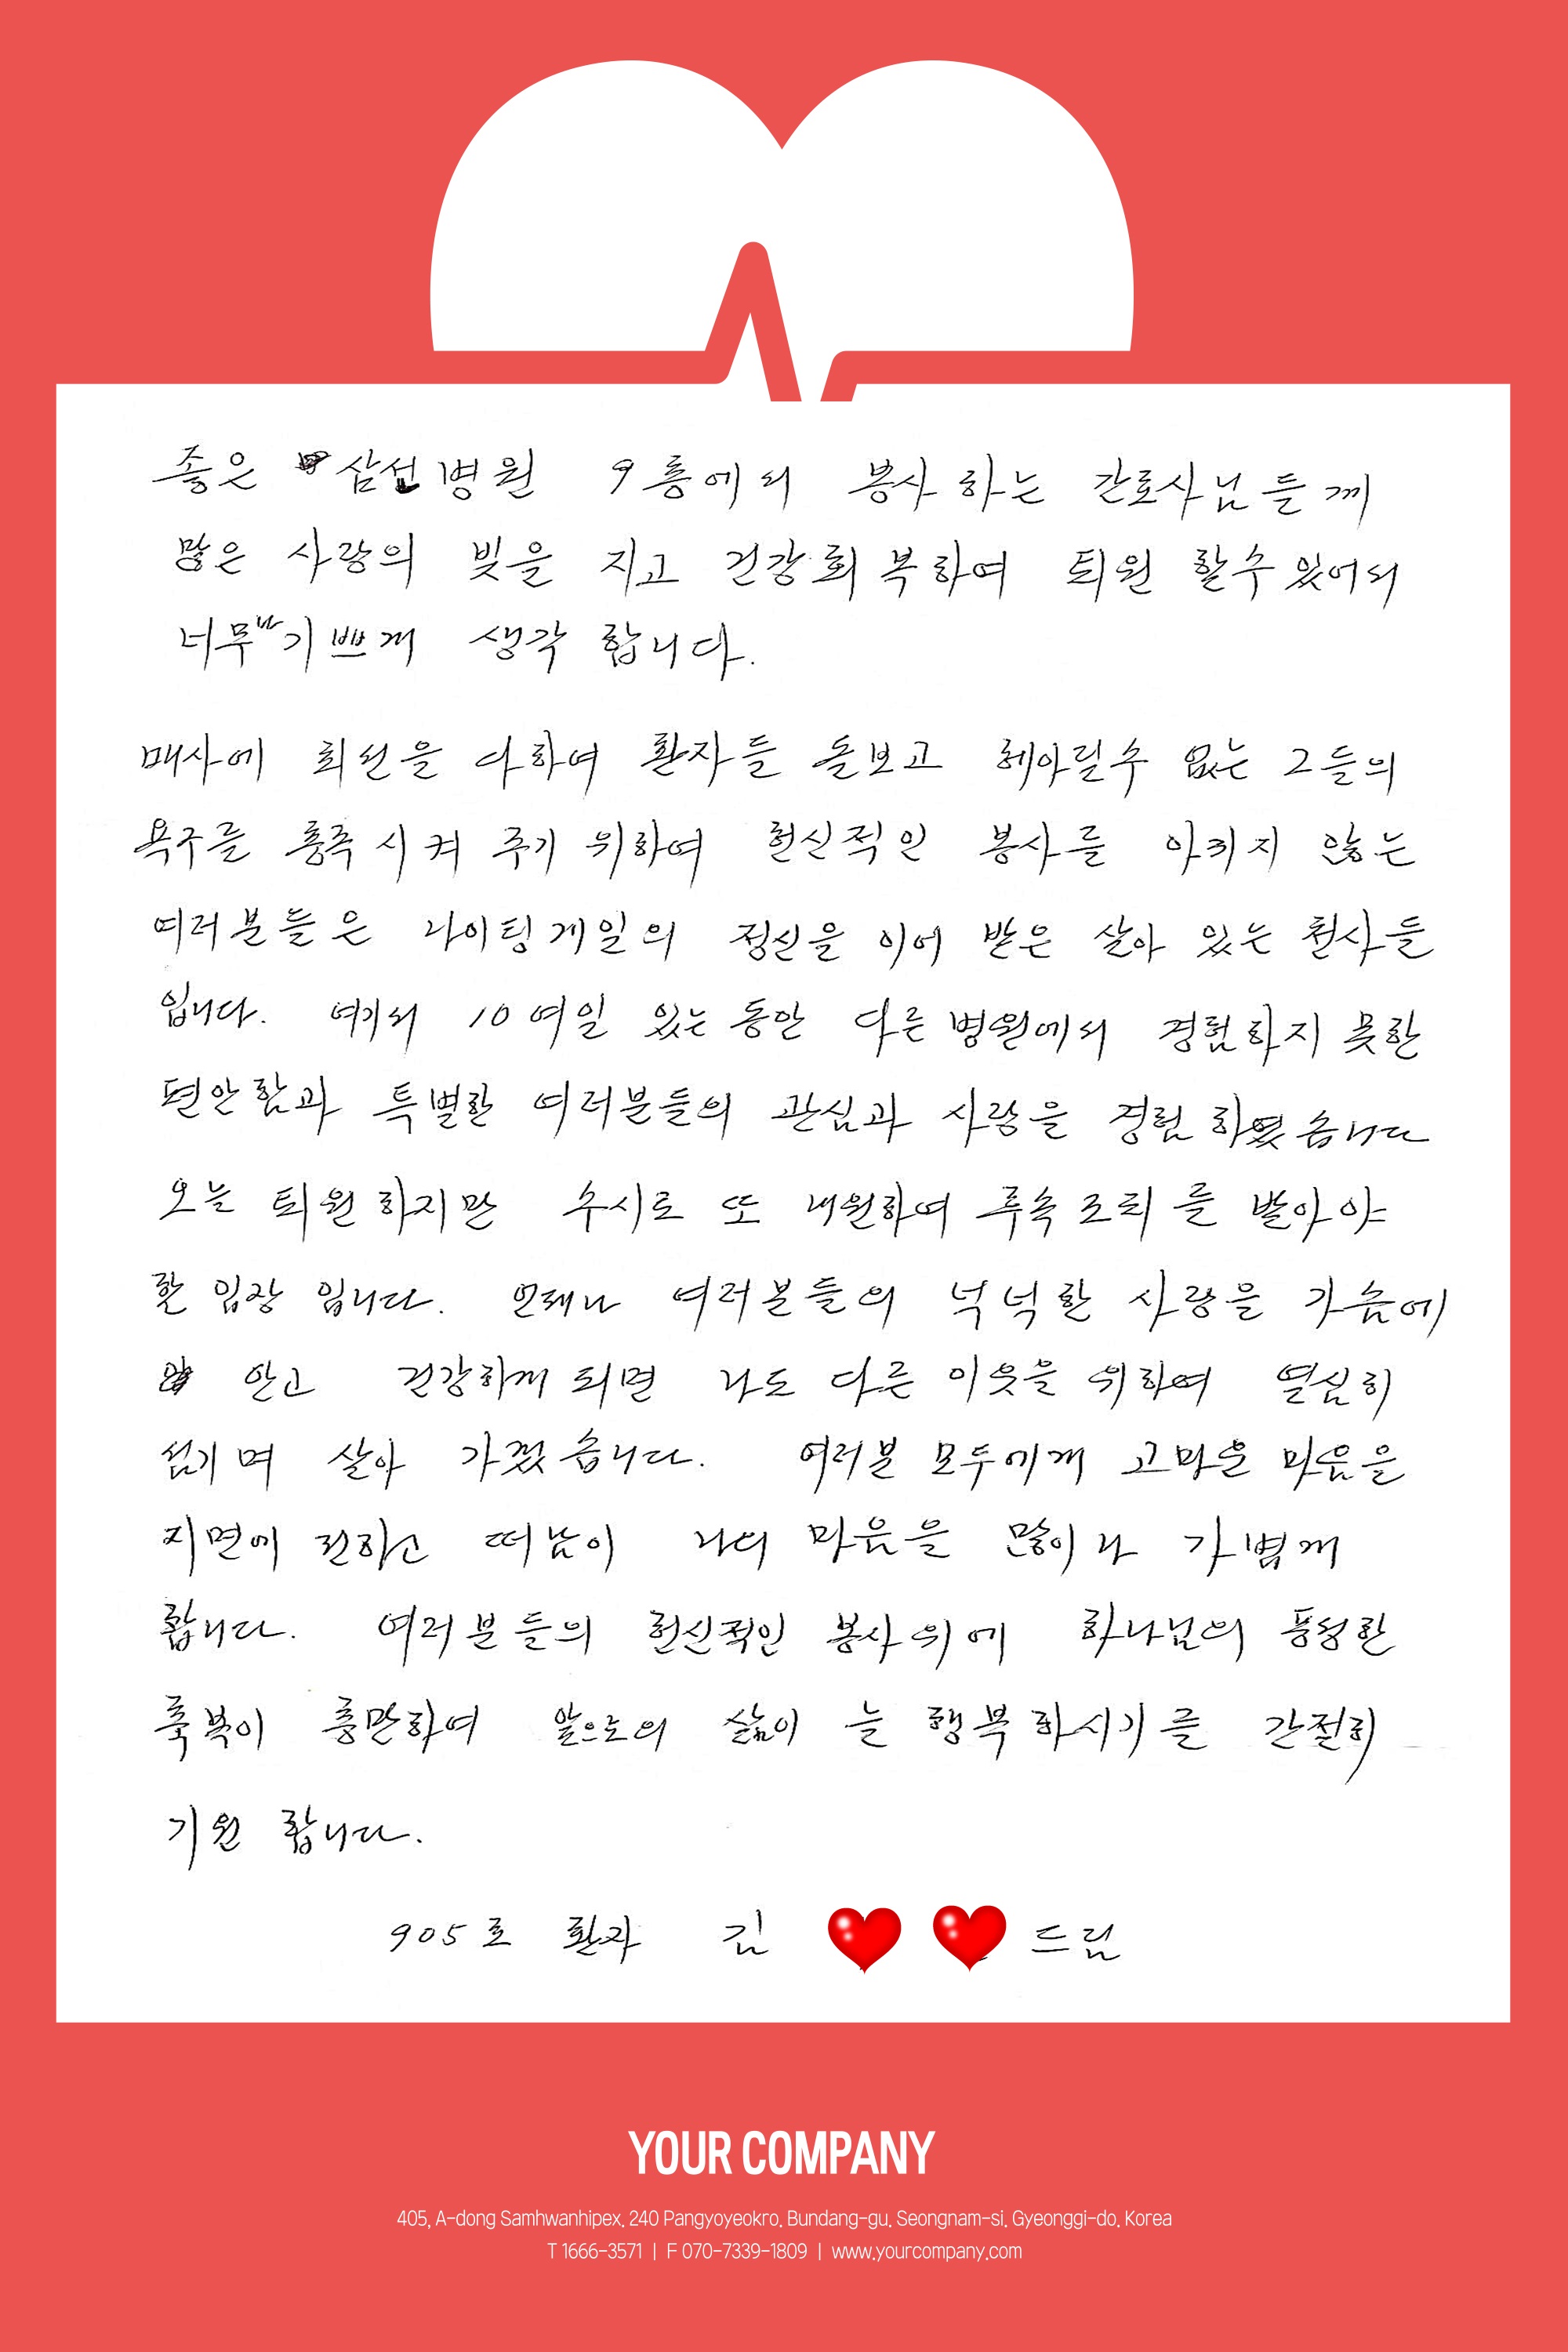 좋은 삼선병원 9층에서 봉사하는 간호사님들께
많은 사랑의 빚을 지고 건강회복하여 퇴원 할수 있어서
너무 기쁘게 생각 합니다.
매사에 최선을 다하여 환자들 돌보고 헤아릴수 없는 그들의
욕구를 충족 시켜 주기 위하여 헌신적인 봉사를 아끼지 않는
여러분들은 나이팅게일의 정신을 이어 받은 살아 있는 천사들
입니다. 여기서 10여일 있는 동안 다른 병원에서 경험하지 못한
편안함과 특별한 여러분들의 관심과 사랑을 경험 하였습니다
오늘 퇴원 하지만 수시로 또 내원하여 후속 조치를 받아야
할 입장 입니다. 언제나 여러분들의 넉넉한 사랑을 가슴에
안고 건강하게 되면 나도 다른 이웃을 위하여 열심히
섬기며 살아 가겠습니다. 여러분 모두에게 고마운 마음을
지면에 전하고 떠남이 나의 마음을 많이나 가볍게
합니다. 여러분들의 헌신적인 봉사위에 하나님의 풍성한
축복이 충만하여 앞으로의 삶이 늘 행복하시기를 간절히
기원 합니다.
905호 환자 김 드림
YOUR COMPANY
405, A-dong Samhwanhipex, 240 Pangyoyeokro, Bundang-gu, Seongnam-si, Gyeonggi-do, Korea
T 1666-3571 | F 070-7339-1809 | www.yourcompany.com